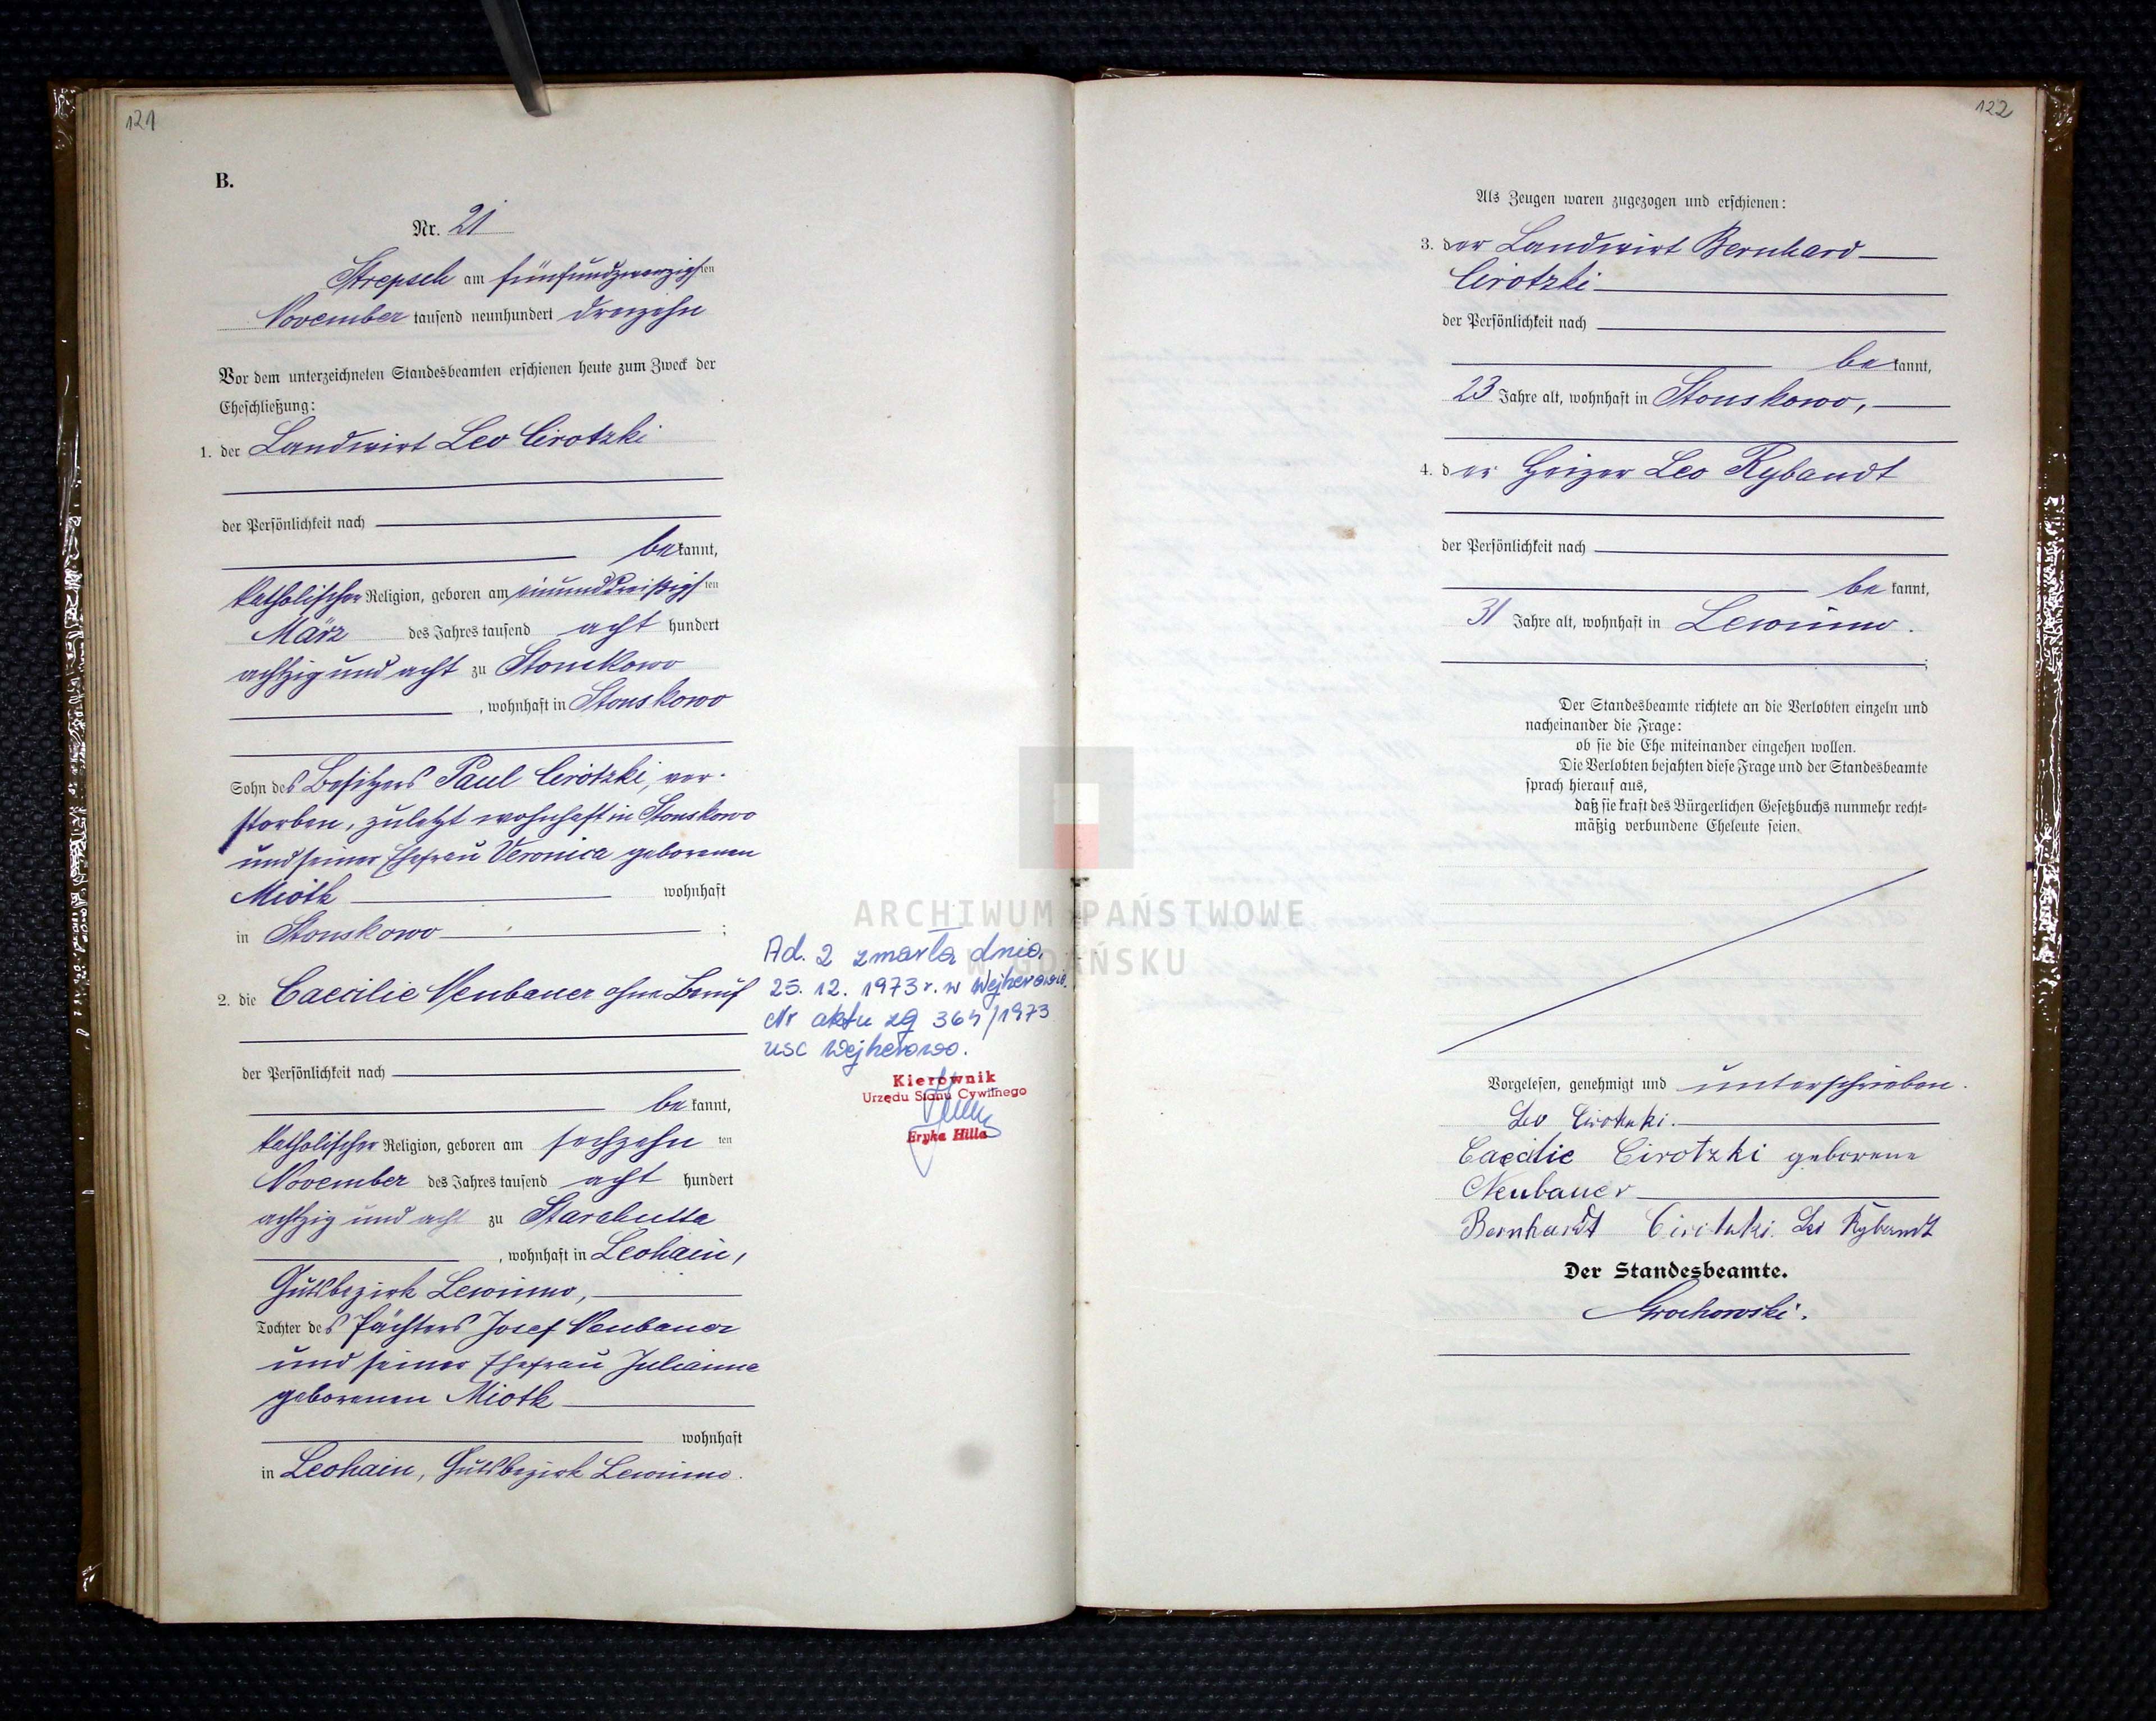 121
B.
Nr. 21
Strepsch am fünfundzwanzigsten
November tausend neunhundert dreizehn
Vor dem unterzeichneten Standesbeamten erschienen heute zum Zweck der
Eheschließung:
1. der Landwirt Leo Cirotzki
der Persönlichkeit nach
bekannt,
katholischer Religion, geboren am einunddreißigsten
März des Jahres tausend acht hundert
achtzig und acht zu Stonskowo
, wohnhaft in Stonskowo
Sohn des Besitzers Paul Cirotzki, ver-
storben, zuletzt wohnhaft in Stonskowo
und seiner Ehefrau Veronica geborenen
Miotk wohnhaft
in Stonskowo ;
2. die Caecilie Neubauer ohne Beruf
der Persönlichkeit nach
bekannt,
katholischer Religion, geboren am sechzehnten
November des Jahres tausend acht hundert
achtzig und acht zu Starahutta
, wohnhaft in Leohain,
Gutsbezirk Lewinno,
Tochter des Pächters Josef Neubauer
und seiner Ehefrau Julianne
geborenen Miotk
wohnhaft
in Leohain, Gutsbezirk Lewinno.
Ad. 2 zmarła dnia
25. 12. 1973 r. w Wejherowie.
Nr aktu zg 364/1973
USC Wejherowo.
Kierownik
Urzędu Stanu Cywilnego
Eryka Hilla
ARCHIWUM PAŃSTWOWE
W GDAŃSKU
122
Als Zeugen waren zugezogen und erschienen:
3. der Landwirt Bernhard
Cirotzki
der Persönlichkeit nach
bekannt,
23 Jahre alt, wohnhaft in Stonskowo,
4. der Heizer Leo Rybandt
der Persönlichkeit nach
bekannt,
31 Jahre alt, wohnhaft in Lewinno.
;
Der Standesbeamte richtete an die Verlobten einzeln und
nacheinander die Frage:
ob sie die Ehe miteinander eingehen wollen.
Die Verlobten bejahten diese Frage und der Standesbeamte
sprach hierauf aus,
daß sie kraft des Bürgerlichen Gesetzbuchs nunmehr recht=
mäßig verbundene Eheleute seien.
Vorgelesen, genehmigt und unterschrieben.
Leo Cirotzki.
Caecilie Cirotzki geborene
Neubauer
Bernhardt Cirotzki. Leo Rybandt
Der Standesbeamte.
Grochowski.